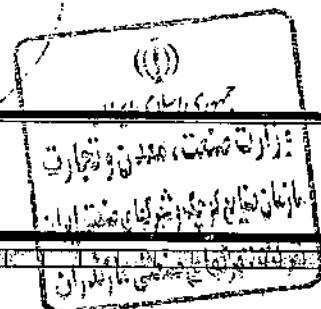 جمهوری اسلامی ایران
وزارت صنعت، معدن و تجارت
سازمان صنایع کوچک و شهرکهای صنعتی ایران
مازندران